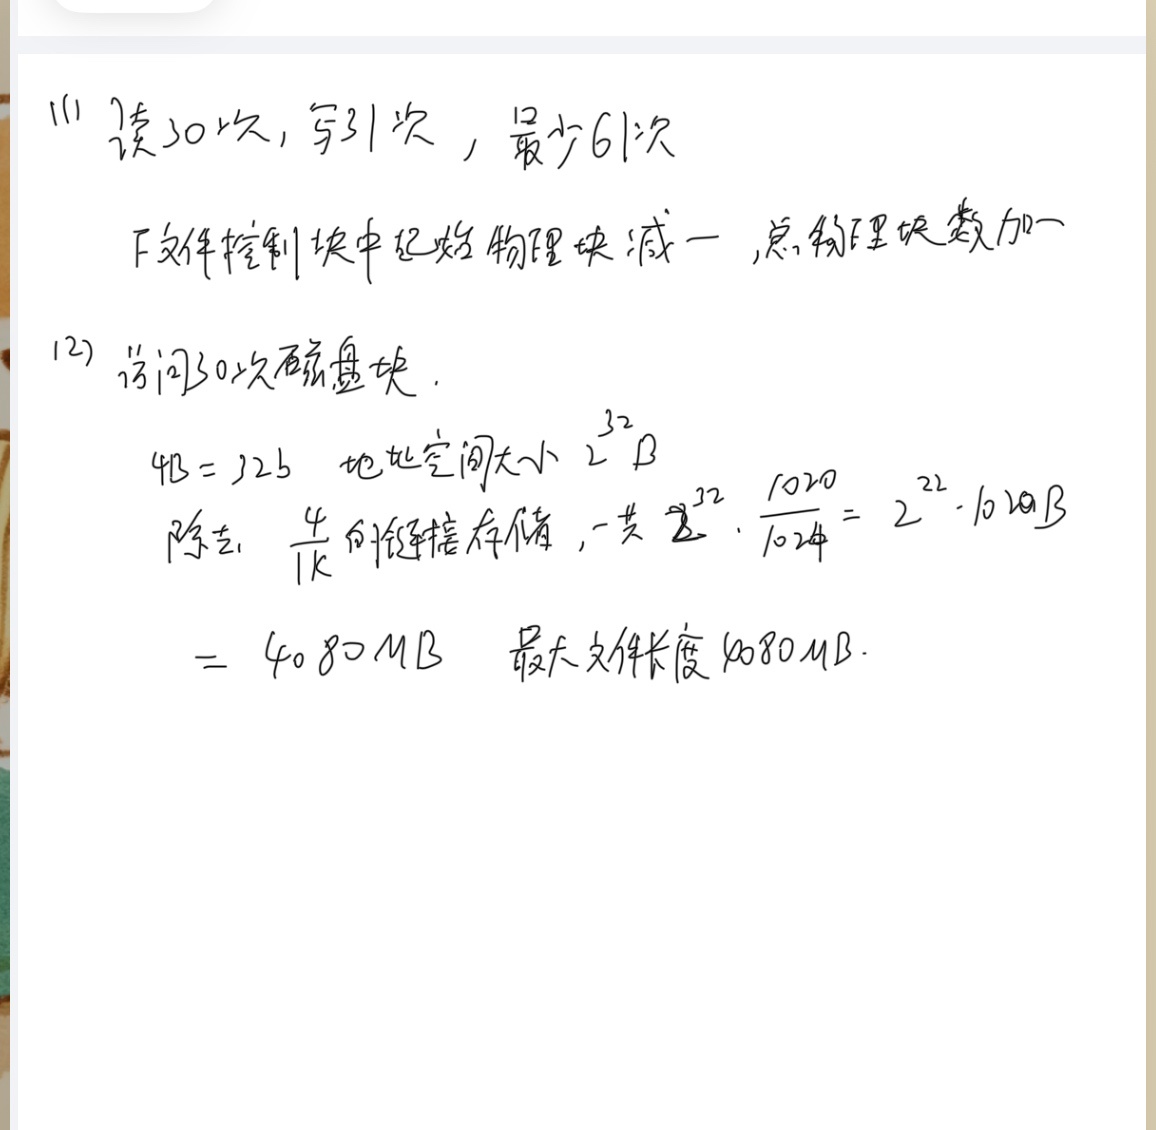 (1) 读30次，写31次，最少61次
F文件控制块中起始物理块减一，总物理块数加一
(2) 访问30次磁盘块.
4B=32b 地址空间大小 2^32 B
除去 4/1K 的链接存储，一共 2^32 · 1020/1024 = 2^22 · 1020B
= 4080MB 最大文件长度4080MB.